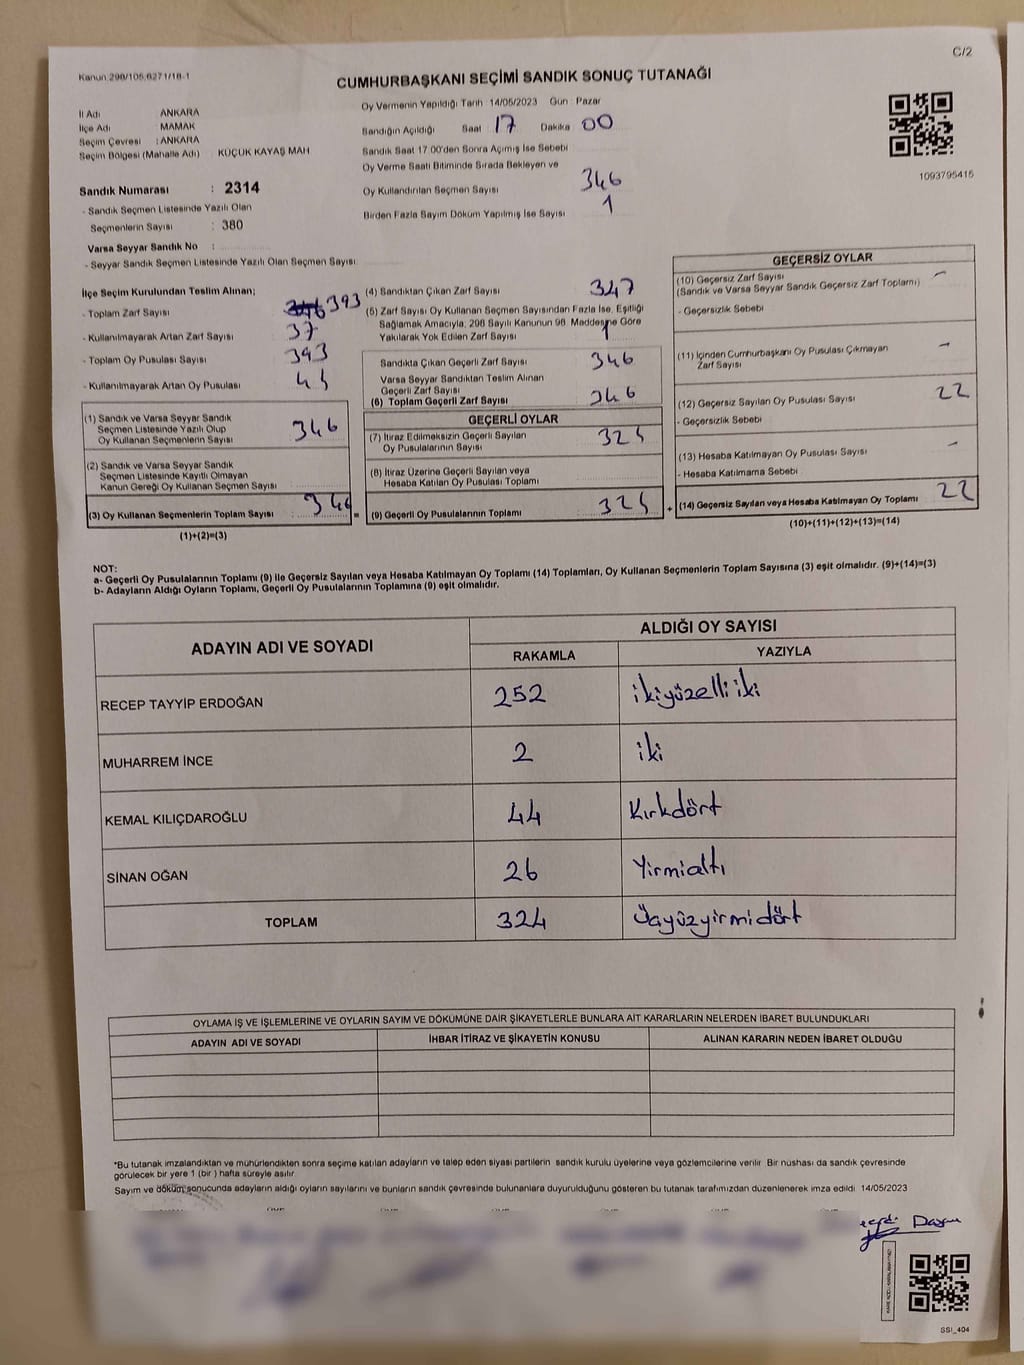 C/2
Kanun 298/105,6271/18-1
CUMHURBAŞKANI SEÇİMİ SANDIK SONUÇ TUTANAĞI
İl Adı ANKARA
İlçe Adı MAMAK
Seçim Çevresi : ANKARA
Seçim Bölgesi (Mahalle Adı) : KÜÇÜK KAYAŞ MAH
Sandık Numarası : 2314
- Sandık Seçmen Listesinde Yazılı Olan
Seçmenlerin Sayısı : 380
Varsa Seyyar Sandık No :
- Seyyar Sandık Seçmen Listesinde Yazılı Olan Seçmen Sayısı
Oy Vermenin Yapıldığı Tarih 14/05/2023 Gün : Pazar
Sandığın Açıldığı Saat 17 Dakika 00
Sandık Saat 17:00'den Sonra Açımış İse Sebebi
Oy Verme Saati Bitiminde Sırada Bekleyen ve
Oy Kullandırılan Seçmen Sayısı 346
Birden Fazla Sayım Döküm Yapılmış İse Sayısı 1
1093795415
İlçe Seçim Kurulundan Teslim Alınan;
- Toplam Zarf Sayısı 393
- Kullanılmayarak Artan Zarf Sayısı 37
- Toplam Oy Pusulası Sayısı 393
- Kullanılmayarak Artan Oy Pusulası
(1) Sandık ve Varsa Seyyar Sandık
Seçmen Listesinde Yazılı Olup
Oy Kullanan Seçmenlerin Sayısı 346
(2) Sandık ve Varsa Seyyar Sandık
Seçmen Listesinde Kayıtlı Olmayan
Kanun Gereği Oy Kullanan Seçmen Sayısı
(3) Oy Kullanan Seçmenlerin Toplam Sayısı 346 =
(1)+(2)=(3)
(4) Sandıktan Çıkan Zarf Sayısı 347
(5) Zarf Sayısı Oy Kullanan Seçmen Sayısından Fazla İse, Eşitliği
Sağlamak Amacıyla, 298 Sayılı Kanunun 98. Maddesine Göre
Yakılarak Yok Edilen Zarf Sayısı 1
Sandıkta Çıkan Geçerli Zarf Sayısı 346
Varsa Seyyar Sandıktan Teslim Alınan
Geçerli Zarf Sayısı
(6) Toplam Geçerli Zarf Sayısı 346
GEÇERLİ OYLAR
(7) İtiraz Edilmeksizin Geçerli Sayılan
Oy Pusulalarının Sayısı 324
(8) İtiraz Üzerine Geçerli Sayılan veya
Hesaba Katılan Oy Pusulası Toplamı
(9) Geçerli Oy Pusulalarının Toplamı 324 +
GEÇERSİZ OYLAR
(10) Geçersiz Zarf Sayısı -
(Sandık ve Varsa Seyyar Sandık Geçersiz Zarf Toplamı)
- Geçersizlik Sebebi
(11) İçinden Cumhurbaşkanı Oy Pusulası Çıkmayan -
Zarf Sayısı
(12) Geçersiz Sayılan Oy Pusulası Sayısı 22
- Geçersizlik Sebebi
(13) Hesaba Katılmayan Oy Pusulası Sayısı -
- Hesaba Katılmama Sebebi
(14) Geçersiz Sayılan veya Hesaba Katılmayan Oy Toplamı 22
(10)+(11)+(12)+(13)=(14)
NOT:
a- Geçerli Oy Pusulalarının Toplamı (9) ile Geçersiz Sayılan veya Hesaba Katılmayan Oy Toplamı (14) Toplamları, Oy Kullanan Seçmenlerin Toplam Sayısına (3) eşit olmalıdır. (9)+(14)=(3)
b- Adayların Aldığı Oyların Toplamı, Geçerli Oy Pusulalarının Toplamına (9) eşit olmalıdır.
ADAYIN ADI VE SOYADI ALDIĞI OY SAYISI
RAKAMLA YAZIYLA
RECEP TAYYİP ERDOĞAN 252 ikiyüzelliiki
MUHARREM İNCE 2 iki
KEMAL KILIÇDAROĞLU 44 Kırkdört
SİNAN OĞAN 26 Yirmialtı
TOPLAM 324 Üçyüzyirmidört
OYLAMA İŞ VE İŞLEMLERİNE VE OYLARIN SAYIM VE DÖKÜMÜNE DAİR ŞİKAYETLERLE BUNLARA AİT KARARLARIN NELERDEN İBARET BULUNDUKLARI
ADAYIN ADI VE SOYADI İHBAR İTİRAZ VE ŞİKAYETİN KONUSU ALINAN KARARIN NEDEN İBARET OLDUĞU
*Bu tutanak imzalandıktan ve mühürlendikten sonra seçime katılan adayların ve talep eden siyasi partilerin sandık kurulu üyelerine veya gözlemcilerine verilir. Bir nüshası da sandık çevresinde
görülecek bir yere 1 (bir) hafta süreyle asılır.
Sayım ve döküm sonucunda adayların aldığı oyların sayılarını ve bunların sandık çevresinde bulunanlara duyurulduğunu gösteren bu tutanak tarafımızdan düzenlenerek imza edildi 14/05/2023
SSI_404